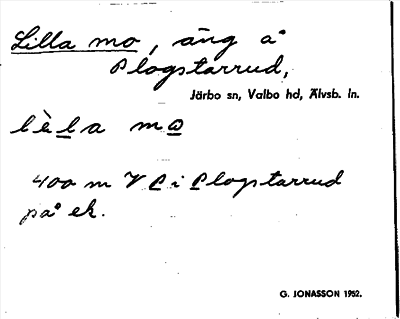 Lilla mo, äng å
Plogstarrud,
Järbo sn, Valbo hd, Älvsb. ln.
lèla mω
400 m V P i Plogstarrud
på ek.
G. JONASSON 1952.